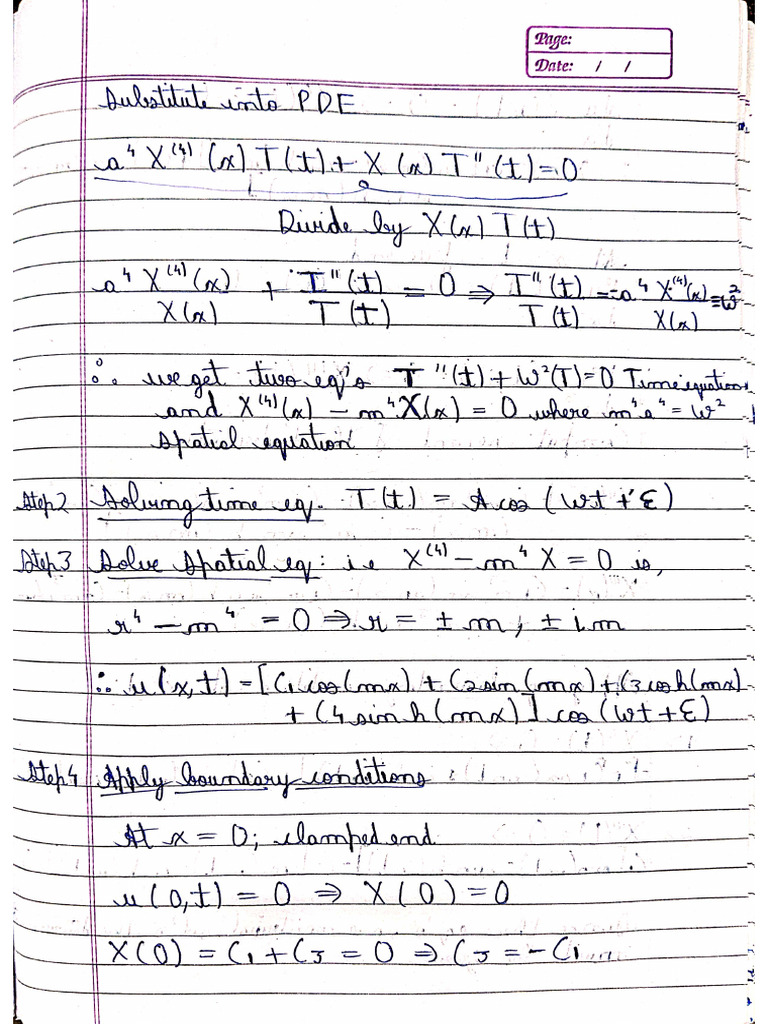 Page:
Date: / /
Substitute into PDE
a⁴ X⁽⁴⁾ (x) T(t) + X (x) T" (t) = 0
Divide by X(x) T(t)
a⁴ X⁽⁴⁾(x) / X(x) + T"(t) / T(t) = 0 ⇒ T"(t) / T(t) = -a⁴ X⁽⁴⁾(x) / X(x) = w²
∴ we get two eq's T "(t) + W²(T) = 0 Time equation
and X⁽⁴⁾(x) - m⁴X(x) = 0 where m⁴a⁴ = w²
spatial equation
Step2 Solving time eq. T(t) = A cos (wt + ε)
Step3 Solve spatial eq: i.e X⁽⁴⁾ - m⁴ X = 0 is,
r⁴ - m⁴ = 0 ⇒ r = ± m, ± i m
∴ u(x,t) = [C₁ cos(mx) + C₂ sin(mx) + C₃ cosh(mx)
+ C₄ sinh(mx)] cos(wt + ε)
Step4 Apply boundary conditions
At x = 0; clamped end
u(0,t) = 0 ⇒ X(0) = 0
X(0) = C₁ + C₃ = 0 ⇒ C₃ = -C₁